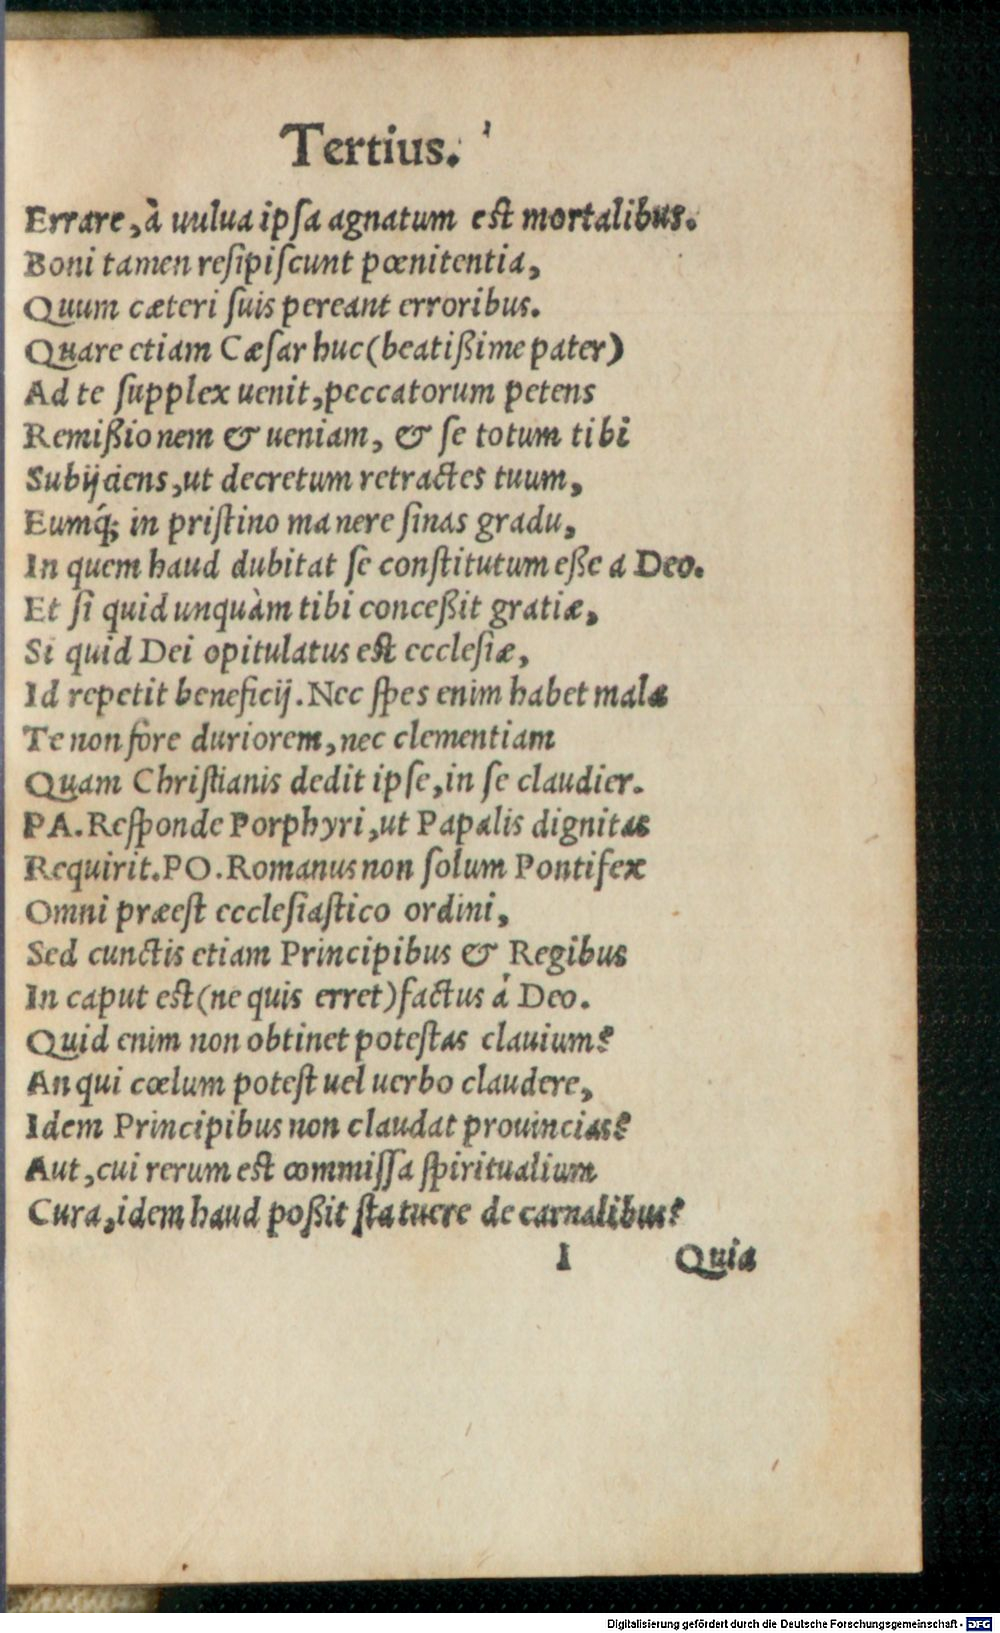 Tertius.
Errare, à uulua ipſa agnatum est mortalibus.
Boni tamen reſipiſcunt pœnitentia,
Quum cæteri ſuis pereant erroribus.
Quare etiam Cæſar huc (beatißime pater)
Ad te ſupplex uenit, peccatorum petens
Remißionem & ueniam, & ſe totum tibi
Subijciens, ut decretum retractes tuum,
Eumq́; in priſtino manere ſinas gradu,
In quem haud dubitat ſe conſtitutum eße a Deo.
Et ſi quid unquàm tibi conceßit gratiæ,
Si quid Dei opitulatus est eccleſiæ,
Id repetit beneficij. Nec ſpes enim habet malæ
Te non fore duriorem, nec clementiam
Quam Chriſtianis dedit ipſe, in ſe claudier.
PA. Reſponde Porphyri, ut Papalis dignitas
Requirit. PO. Romanus non ſolum Pontifex
Omni præeſt eccleſiaſtico ordini,
Sed cunctis etiam Principibus & Regibus
In caput est (ne quis erret) factus á Deo.
Quid enim non obtinet poteſtas clauium?
An qui cœlum poteſt uel uerbo claudere,
Idem Principibus non claudat prouincias?
Aut, cui rerum est commiſſa ſpiritualium
Cura, idem haud poßit ſtatuere de carnalibus?
I Quia
Digitalisierung gefördert durch die Deutsche Forschungsgemeinschaft - DFG